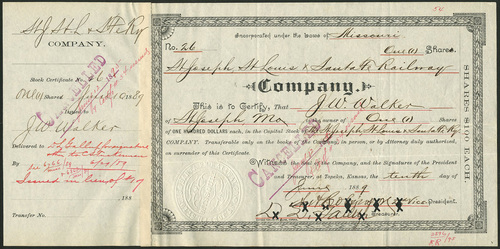 St J St L & St Fe Ry
COMPANY.
Stock Certificate No. 26
One (1) Shares
June 10 1889
Issued to
J W Walker
Delivered to
Issued in lieu of No 19
188
Transfer No.
CANCELLED
Incorporated under the laws of Missouri
No. 26 One (1) Shares.
St Joseph St Louis & Santa Fe Railway
Company.
This is to Certify, That J W Walker
of St Joseph Mo is the owner of One (1) Shares
of ONE HUNDRED DOLLARS each, in the Capital Stock of St Joseph St Louis & Santa Fe Ry
COMPANY. Transferable only on the books of the Company, in person, or by Attorney duly authorized,
on surrender of this Certificate.
Witness the Seal of the Company, and the Signatures of the President
and Treasurer, at Topeka, Kansas, the tenth day of
June 1889
Vice President
Treasurer.
CANCELLED
SHARES $100 EACH.